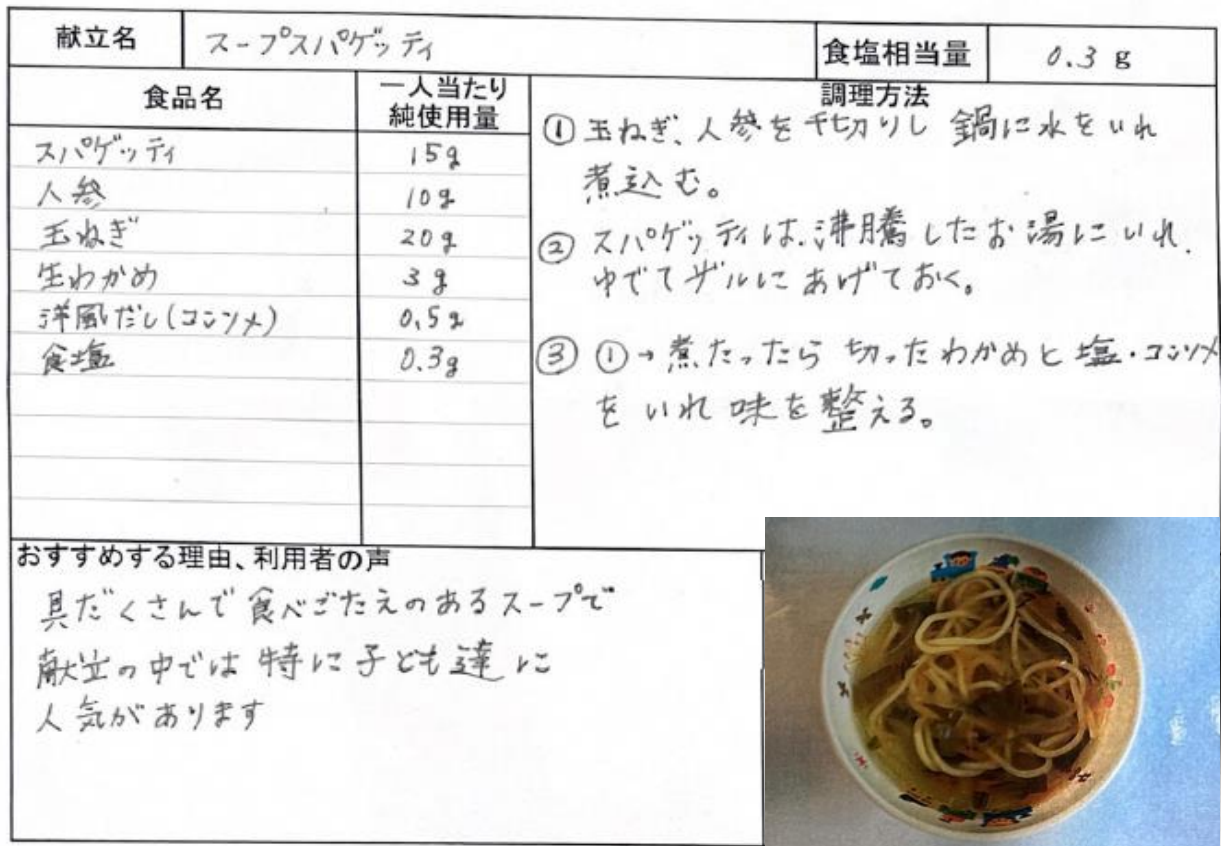 献立名 スープスパゲッティ 食塩相当量 0.3 g
食品名 一人当たり純使用量
スパゲッティ 15g
人参 10g
玉ねぎ 20g
生わかめ 3g
洋風だし(コンソメ) 0.5g
食塩 0.3g
調理方法
① 玉ねぎ、人参を千切りし 鍋に水をいれ
煮込む。
② スパゲッティは、沸騰したお湯にいれ、
ゆでてザルにあげておく。
③ ①→煮たったら 切ったわかめと塩・コンソメ
をいれ 味を整える。
おすすめする理由、利用者の声
具だくさんで食べごたえのあるスープで
献立の中では特に子ども達に
人気があります